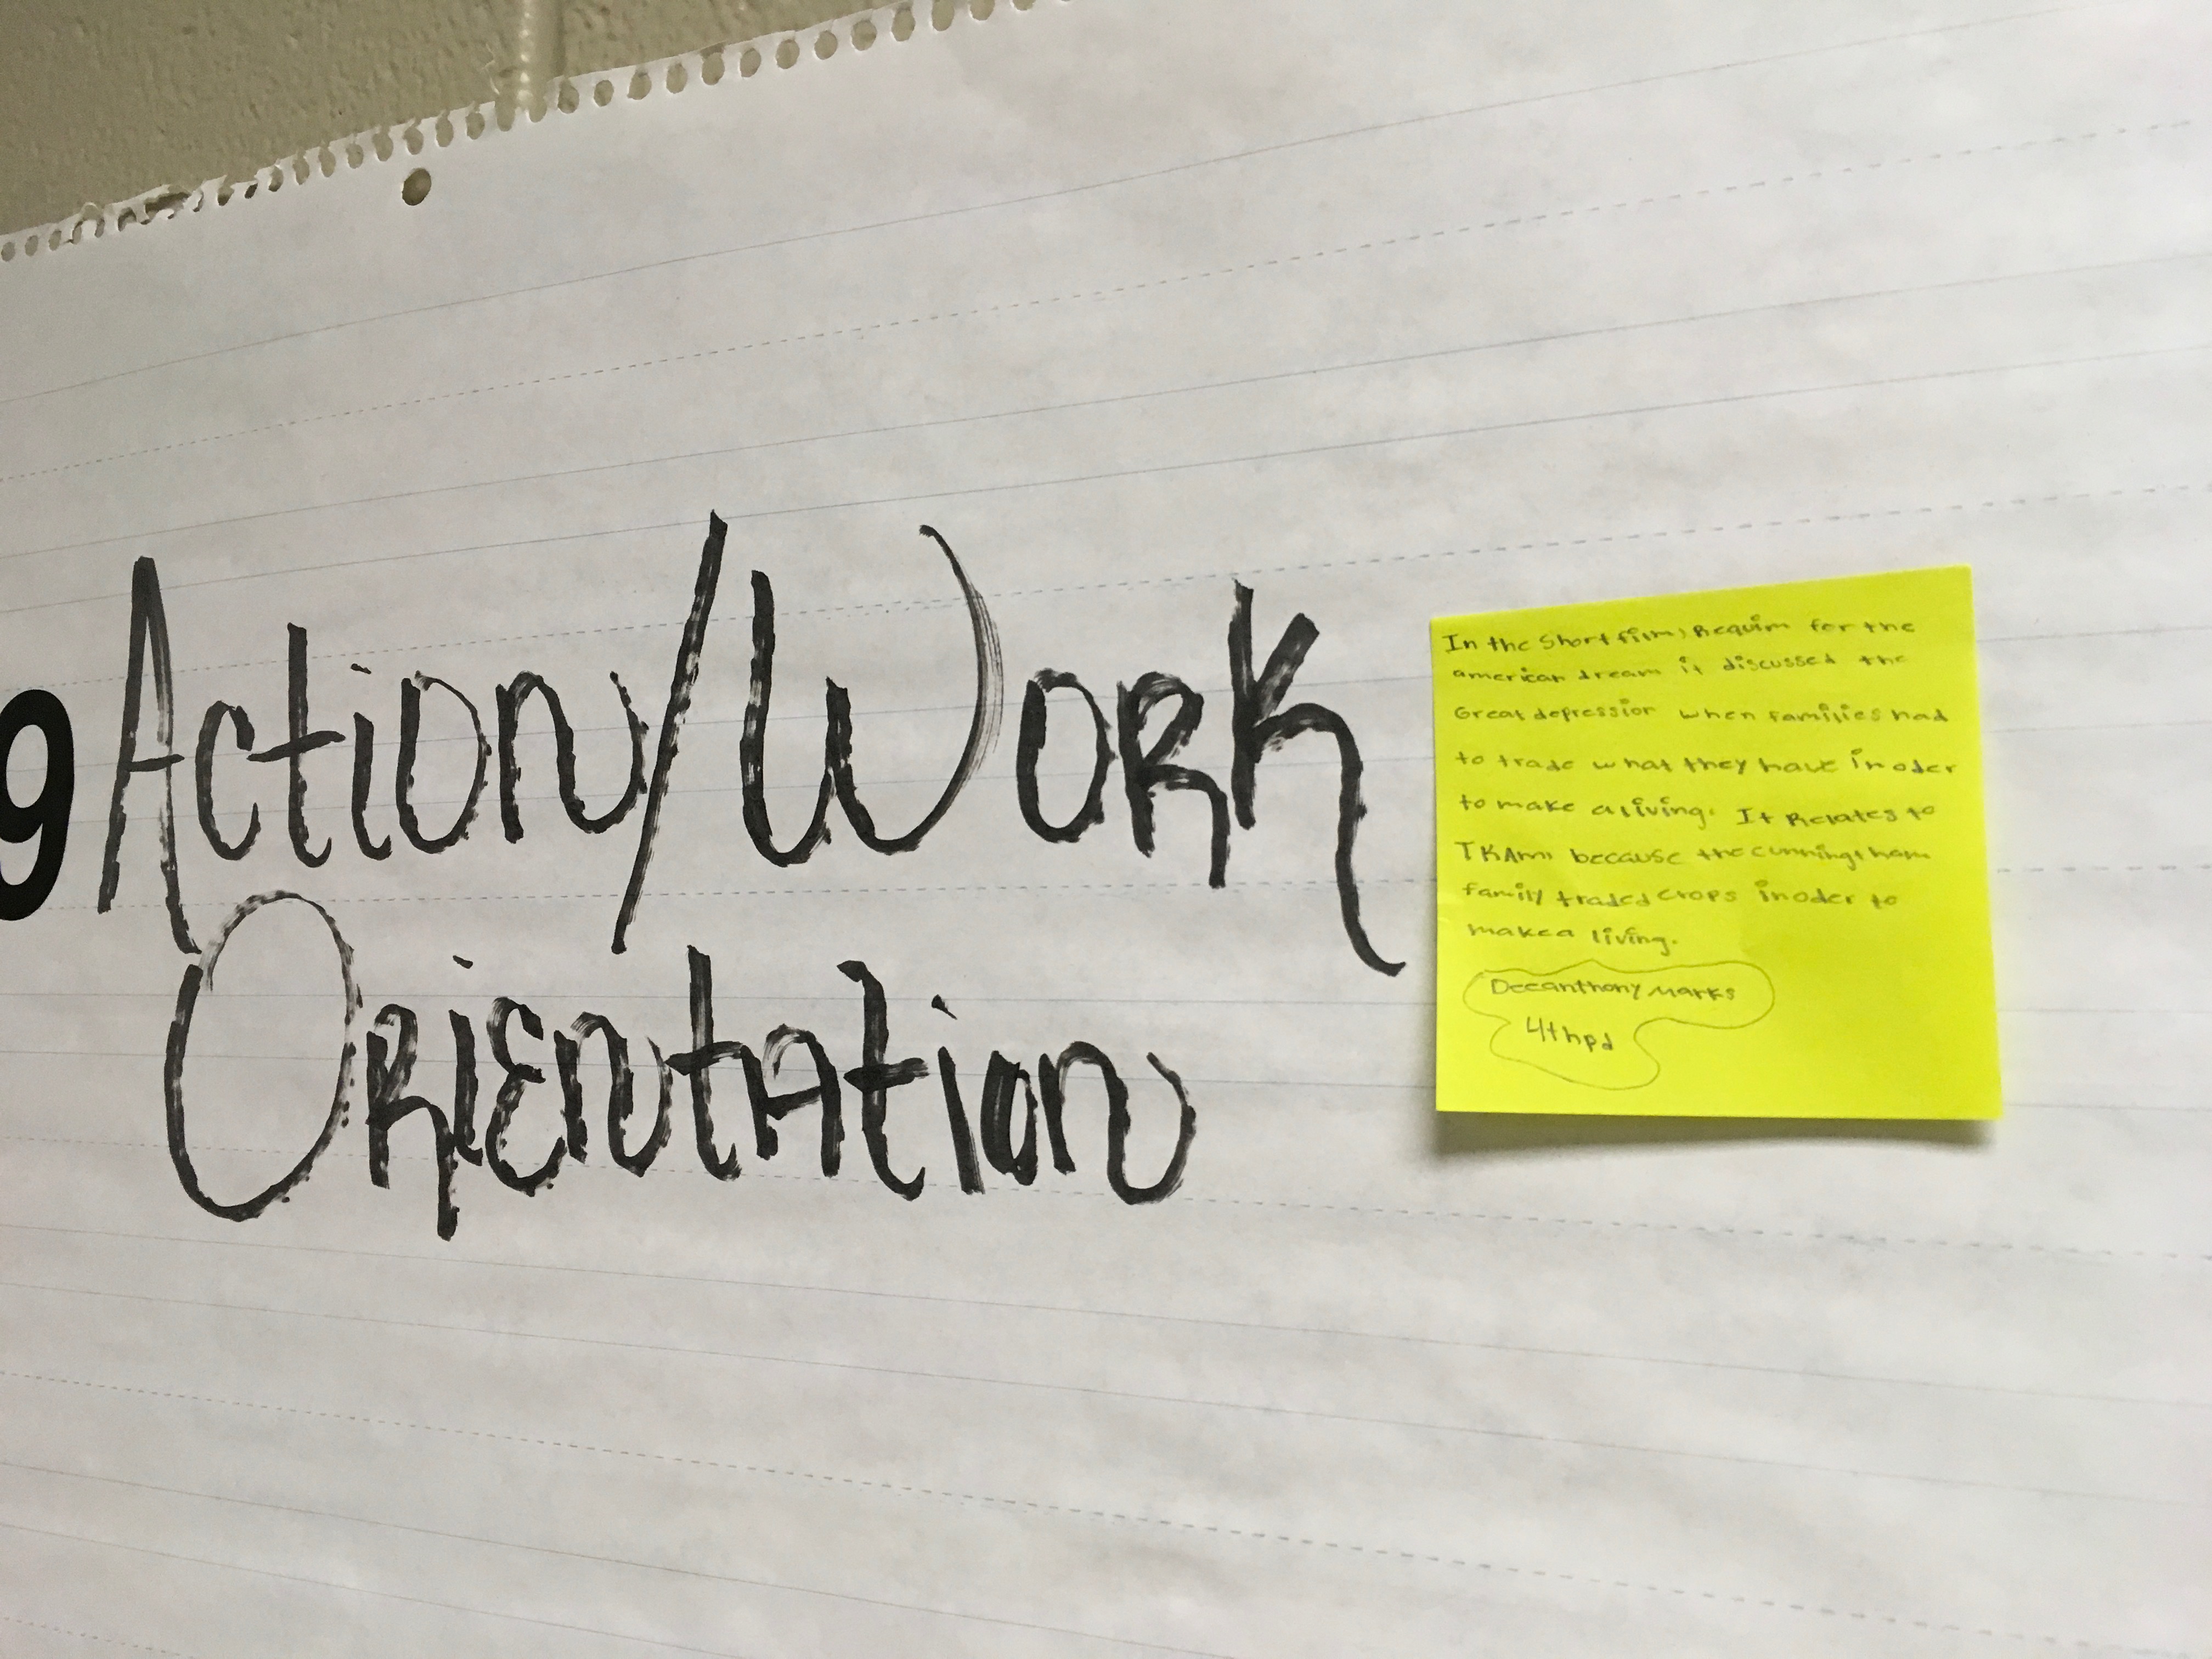 9 Action/Work
Orientation
In the Short film, Requim for the
american dream it discussed the
Great depression when families had
to trade what they have in oder
to make a living. It Relates to
TKAM because the cunningham
family traded crops in oder to
make a living.
Deeanthony Marks
4th pd